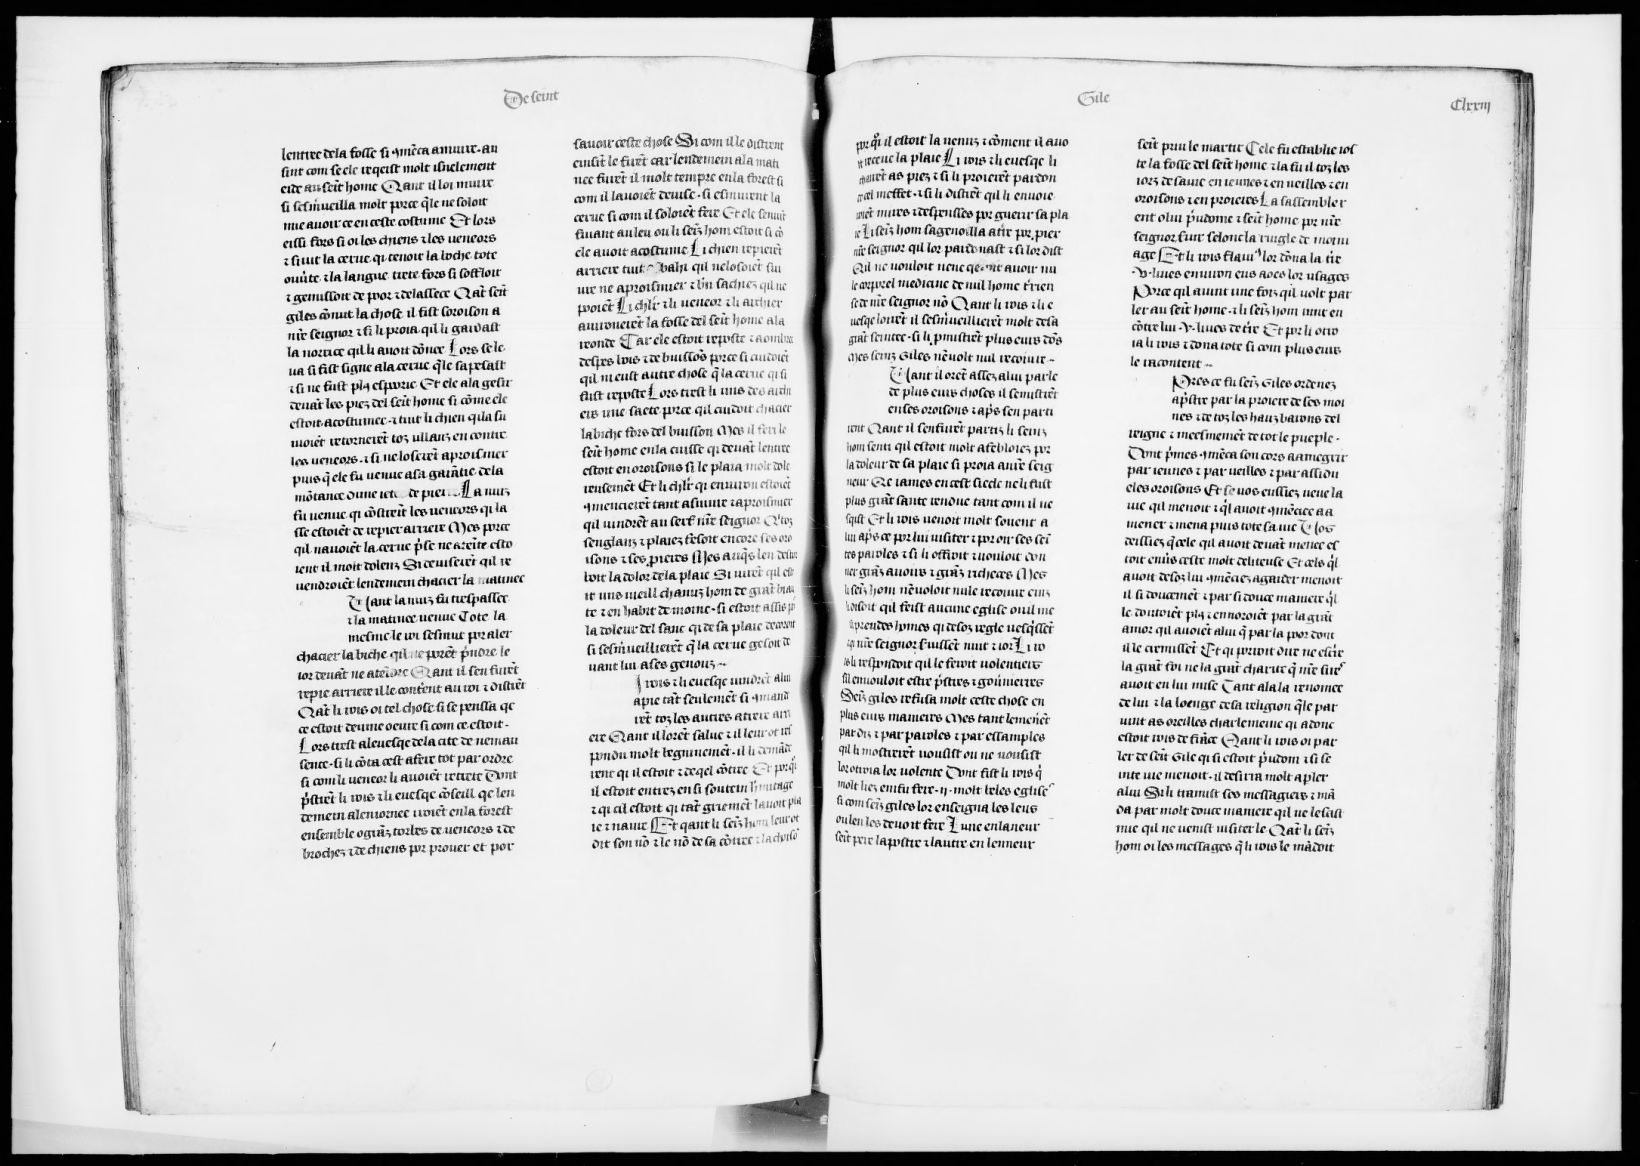 De seint
lentree dela fosse si 9mẽca amuire. au
sint com se ele reqeist molt isnelement
eide au seĩt home Qant il loi muire
si sesm̃ueilla molt porce q̃le ne soloit
mie auoir ce en ceste costume Et lors
eissi fors si oi les chiens ⁊ les ueneors
⁊ si uit la cerue. qi tenoit la boche. tote
ouũte. ⁊ la langue. tiete fors si sofloit
⁊ gemissoit de poor ⁊ delassece Qãt seĩt
giles cõnut la chose il fist soroison a
nr̃e seignor ⁊ si li proia qil li gardast
la norrice qil li auoit dõnee Lors se le
ua si fist signe ala cerue q̃le sapesast
⁊ si ne fust pl9 esporie Et ele ala gesir
deuãt les piez del seĩt home si cõme ele
estoit acostumee. ⁊ tuit li chien qila su
iuoiẽt retornerẽt toz ullanz en contre
les ueneors. ⁊ si ne loserẽt aproismier
puis q̃ ele fu uenue asa garãtie. dela
mõtance dune iete de pierre La nuiz
fu uenue. qi cõstreĩt les ueneors qi la
sse estoiẽt de repier arriere Mes porce
qil nauoiẽt la cerue p̃se ne areĩte esto
ient il moit dolenz Si deuiserẽt qil re
uendroiẽt lendemein chacier la matinee
Qant la nuiz fu trespassee
⁊ la matinee uenue Tote la
mesnie le roi sesmut por aler
chacier la biche. qil ne porẽt p̃ndre le
ior deuãt ne ateĩdre Qant il sen furẽt
repie arriere il le contẽrent au roi ⁊ distrẽt
Qãt li rois oi tel chose si se penssa qe
ce estoit deuine oeure si com ce estoit.
Lors trest aleuesqe dela cite de nemau
sence. si li cõta cest afere tot par ordre
si com li ueneor li auoiẽt retrete Dont
p̃strẽt li rois ⁊ li euesqe cõseill qe len
demein aleiornee iroiẽt en la forest
ensemble o grãz torbes de ueneors ⁊ de
brochez ⁊ de chiens por prouer et por
sauoir ceste chose Si com il le distrent
einsit le firẽt car lendemein ala mati
nee furẽt il molt tempre en la forest si
com il lauoiẽt deuise. si esmurent la
cerue si com il soloiẽt fere Et ele senuit
fuiant au leu ou li seĩz hom estoit si cõ
ele auoit acostume Li chien repierẽt
arriere tuit bahi qil ne losoiẽt sui
ure ne aproismier ⁊ bñ sachiez qil ne
pooiẽt Li chl'r ⁊ li ueneor ⁊ li archier
auironerẽt la fosse del seĩt home ala
reonde Car ele estoit reposte ⁊ aombree
despes bois ⁊ de buissõs porce si cuidoiẽt
qil ni eust autre chose q̃ la cerue qi si
fust reposte Lors trest li uns des archi
ers une saete porce qil cuidoit chacier
la biche fors del buisson Mes il feri le
seĩt home en la cuisse qi deuãt lentree
estoit en oroisons si le plaia molt dole
reusemẽt Et li chl'r qi enuiron estoiẽt
9mencierẽt tant asuiure ⁊ aproismier
qil uindrẽt au serf nr̃e seignor Q̃ toz
senglanz ⁊ plaiez fesoit encore ses oro
isons ⁊ ses prieres Mes auq̃s len destor
boit la dolor dela plaie Si uirẽt qil est
it uns uieill chanuz hom de grãt biau
te ⁊ en habit de moine. si estoit assis por
la doleur del sanc qi de sa plaie decoroit
si sesm̃ueillierẽt q̃ la cerue gesoit de
uant lui ases genouz..
Li rois ⁊ li euesqe uindrẽt alui
apie tãt seulemẽt si 9mand
erẽt toz les autres atrere arri
ere Qant il lorẽt salue ⁊ il leur ot res
pondu molt begninemẽt. il li demãde
rent qi il estoit ⁊ de qel cõtree Et por qi
il estoit entrez en si soutein h̃mitage
⁊ qi cil estoit qi tãt griemẽt lauoit pla
ie ⁊ naure Et qant li seĩz hom leur ot
dit son nõ ⁊ le nõ de sa cõtree ⁊ la choise
Gile
Clxxiij
por qi il estoit la uenuz ⁊ cõment il auo
it receue la plaie Li rois ⁊ li euesqe li
chaĩrẽt as piez ⁊ si li proierẽt pardon
de cel meffet. ⁊ si li distrẽt qil li enuoie
roiẽt mires ⁊ despensses por guerir sa pla
ie Li seĩz hom sagenoilla atr̃e por pier
nr̃e seignor qil lor pardonast ⁊ si lor dist
Qil ne uouloit nene qeroit auoir nu
le corporel medicine de nul home t'rien
se de nr̃e seignor nõ Qant li rois ⁊ li e
uesqe loirẽt il sesm̃ueillierẽt molt desa
grãt seintee. si li p̃mistrẽt plus eurs dõs
Mes seinz Giles nẽ uolt nul receuire..
Qant il orẽt assez alui parle
de plus eurs choses il semistrẽt
en ses oroisons ⁊ ap̃s sen parti
rent Qant il senfurẽt partiz li seinz
hom senti qil estoit molt afebloiez por
la doleur de sa plaie si proia anr̃e seig
neur Qe iames en cest siecle ne li fust
plus grãt sante rendue tant com il ue
sqist Et li rois uenoit molt souent a
lui ap̃s ce por lui uisiter ⁊ por oir ses sei
tes paroles ⁊ si li offroit ⁊ uouloit don
ner grãz auoirs ⁊ grãz richeces Mes
li seĩz hom nẽ uoloit nule receuire einz
looit qil feist aucune eglise ou il me
ĩst prendes homes qi desoz regle uesq̃ssẽt
⁊ qi nr̃e seignor seruissẽt nuit ⁊ ior Li ro
is li respondoit qil le feroit uolentiers
sil enuouloit estre p̃stres ⁊ gouũnierres
Seĩz giles refusa molt ceste chose en
plus eurs manieres Mes tant lemenẽt
par diz ⁊ par paroles ⁊ par essamples
qil li mostrerẽt uousist ou ne uousist
lor otroia lor uolente Dont fist li rois q̃
molt liez en fu fere .ij. molt beles eglises
si com seĩz giles lor enseigna les leus
ou len les deuoit fere Lune en laneur
seĩt pere lapostre ⁊ lautre en lenneur
seĩt priu le martir Cele fu establie ios
te la fosse del seĩt home ⁊ la fu il toz les
iorz de sauie en ieunes ⁊ en ueilles ⁊ en
oroisons ⁊ en proieres La sassembler
ent o lui p̃udome ⁊ seĩt home por nr̃e
seignor suir selonc la ruigle de moni
age Et li rois flaui9 lor dona la tr̃e
.v. liues enuiron eus aoes lor usages
Porce qil auint une foiz qil uolt par
ler au seĩt home. ⁊ li seĩz hom uint en
cõtre lui .v. liues de tr̃e Et por li otro
ia li rois ⁊ dona tote si com plus eurs
le racontent..
Pres ce fu seĩz Giles ordenez
ap̃stre par la proiere de ses moi
nes ⁊ de toz les hauz barons del
reigne ⁊ meesmemẽt de tot le pueple.
Dont p̃mes 9mẽca son cors aamegrir
par ieunes ⁊ par ueilles ⁊ par assidu
eles oroisons Et se uos eussiez ueue la
uie qil menoit ⁊ q̃l auoit 9mẽciee aa
mener ⁊ mena puis tote sa uie Uos
deissiez q̃ cele qil auoit deuãt menee es
toit enũs ceste molt deliteuse Et cels q̃l
auoit desoz lui 9mẽciez agarder menoit
il si doucemẽt ⁊ par si douce maniere q̃l
le doutoiẽt pl9 ⁊ ennoroiẽt par la grãt
amor qil auoiẽt alui q̃ par la poor dont
il le cremissẽt Et qi porroit dire ne escr̃e
la grãt foi ne la grãt charite q̃ nr̃e sire
auoit en lui mise Tant ala la renomee
de lui ⁊ la loenge de sa religion q̃le par
uint as oreilles charlemeine qi adonc
estoit rois de frãce Qant li rois oi par
ler de seĩt Gile qi si estoit p̃udom ⁊ si se
inte uie menoit. il desirra molt apler
alui Si li tramist ses messagiers ⁊ mã
da par molt douce maniere qil ne lesast
mie qil ne uenist uisiter le Qãt li seĩz
hom oi les messages q̃ li rois le mãdoit